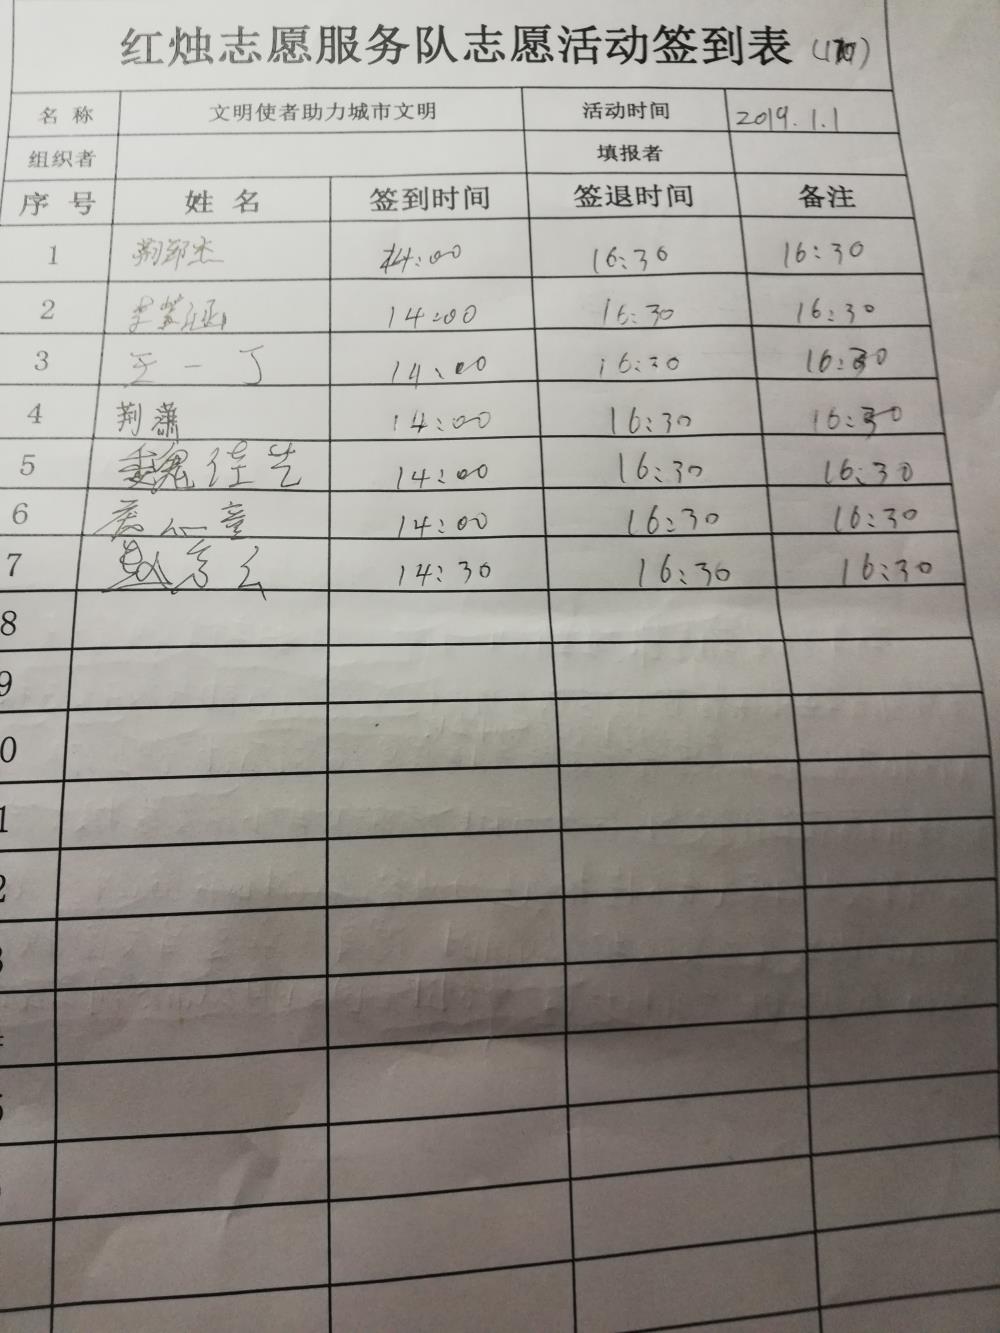 红烛志愿服务队志愿活动签到表
名 称 文明使者助力城市文明 活动时间 2019.1.1
组织者 填报者
序 号 姓 名 签到时间 签退时间 备注
1 14:00 16:30 16:30
2 14:00 16:30 16:30
3 王一丁 14:00 16:30 16:30
4 荆潇 14:00 16:30 16:30
5 魏佳 14:00 16:30 16:30
6 14:00 16:30 16:30
7 14:30 16:30 16:30
8
9
0
1
2
3
5